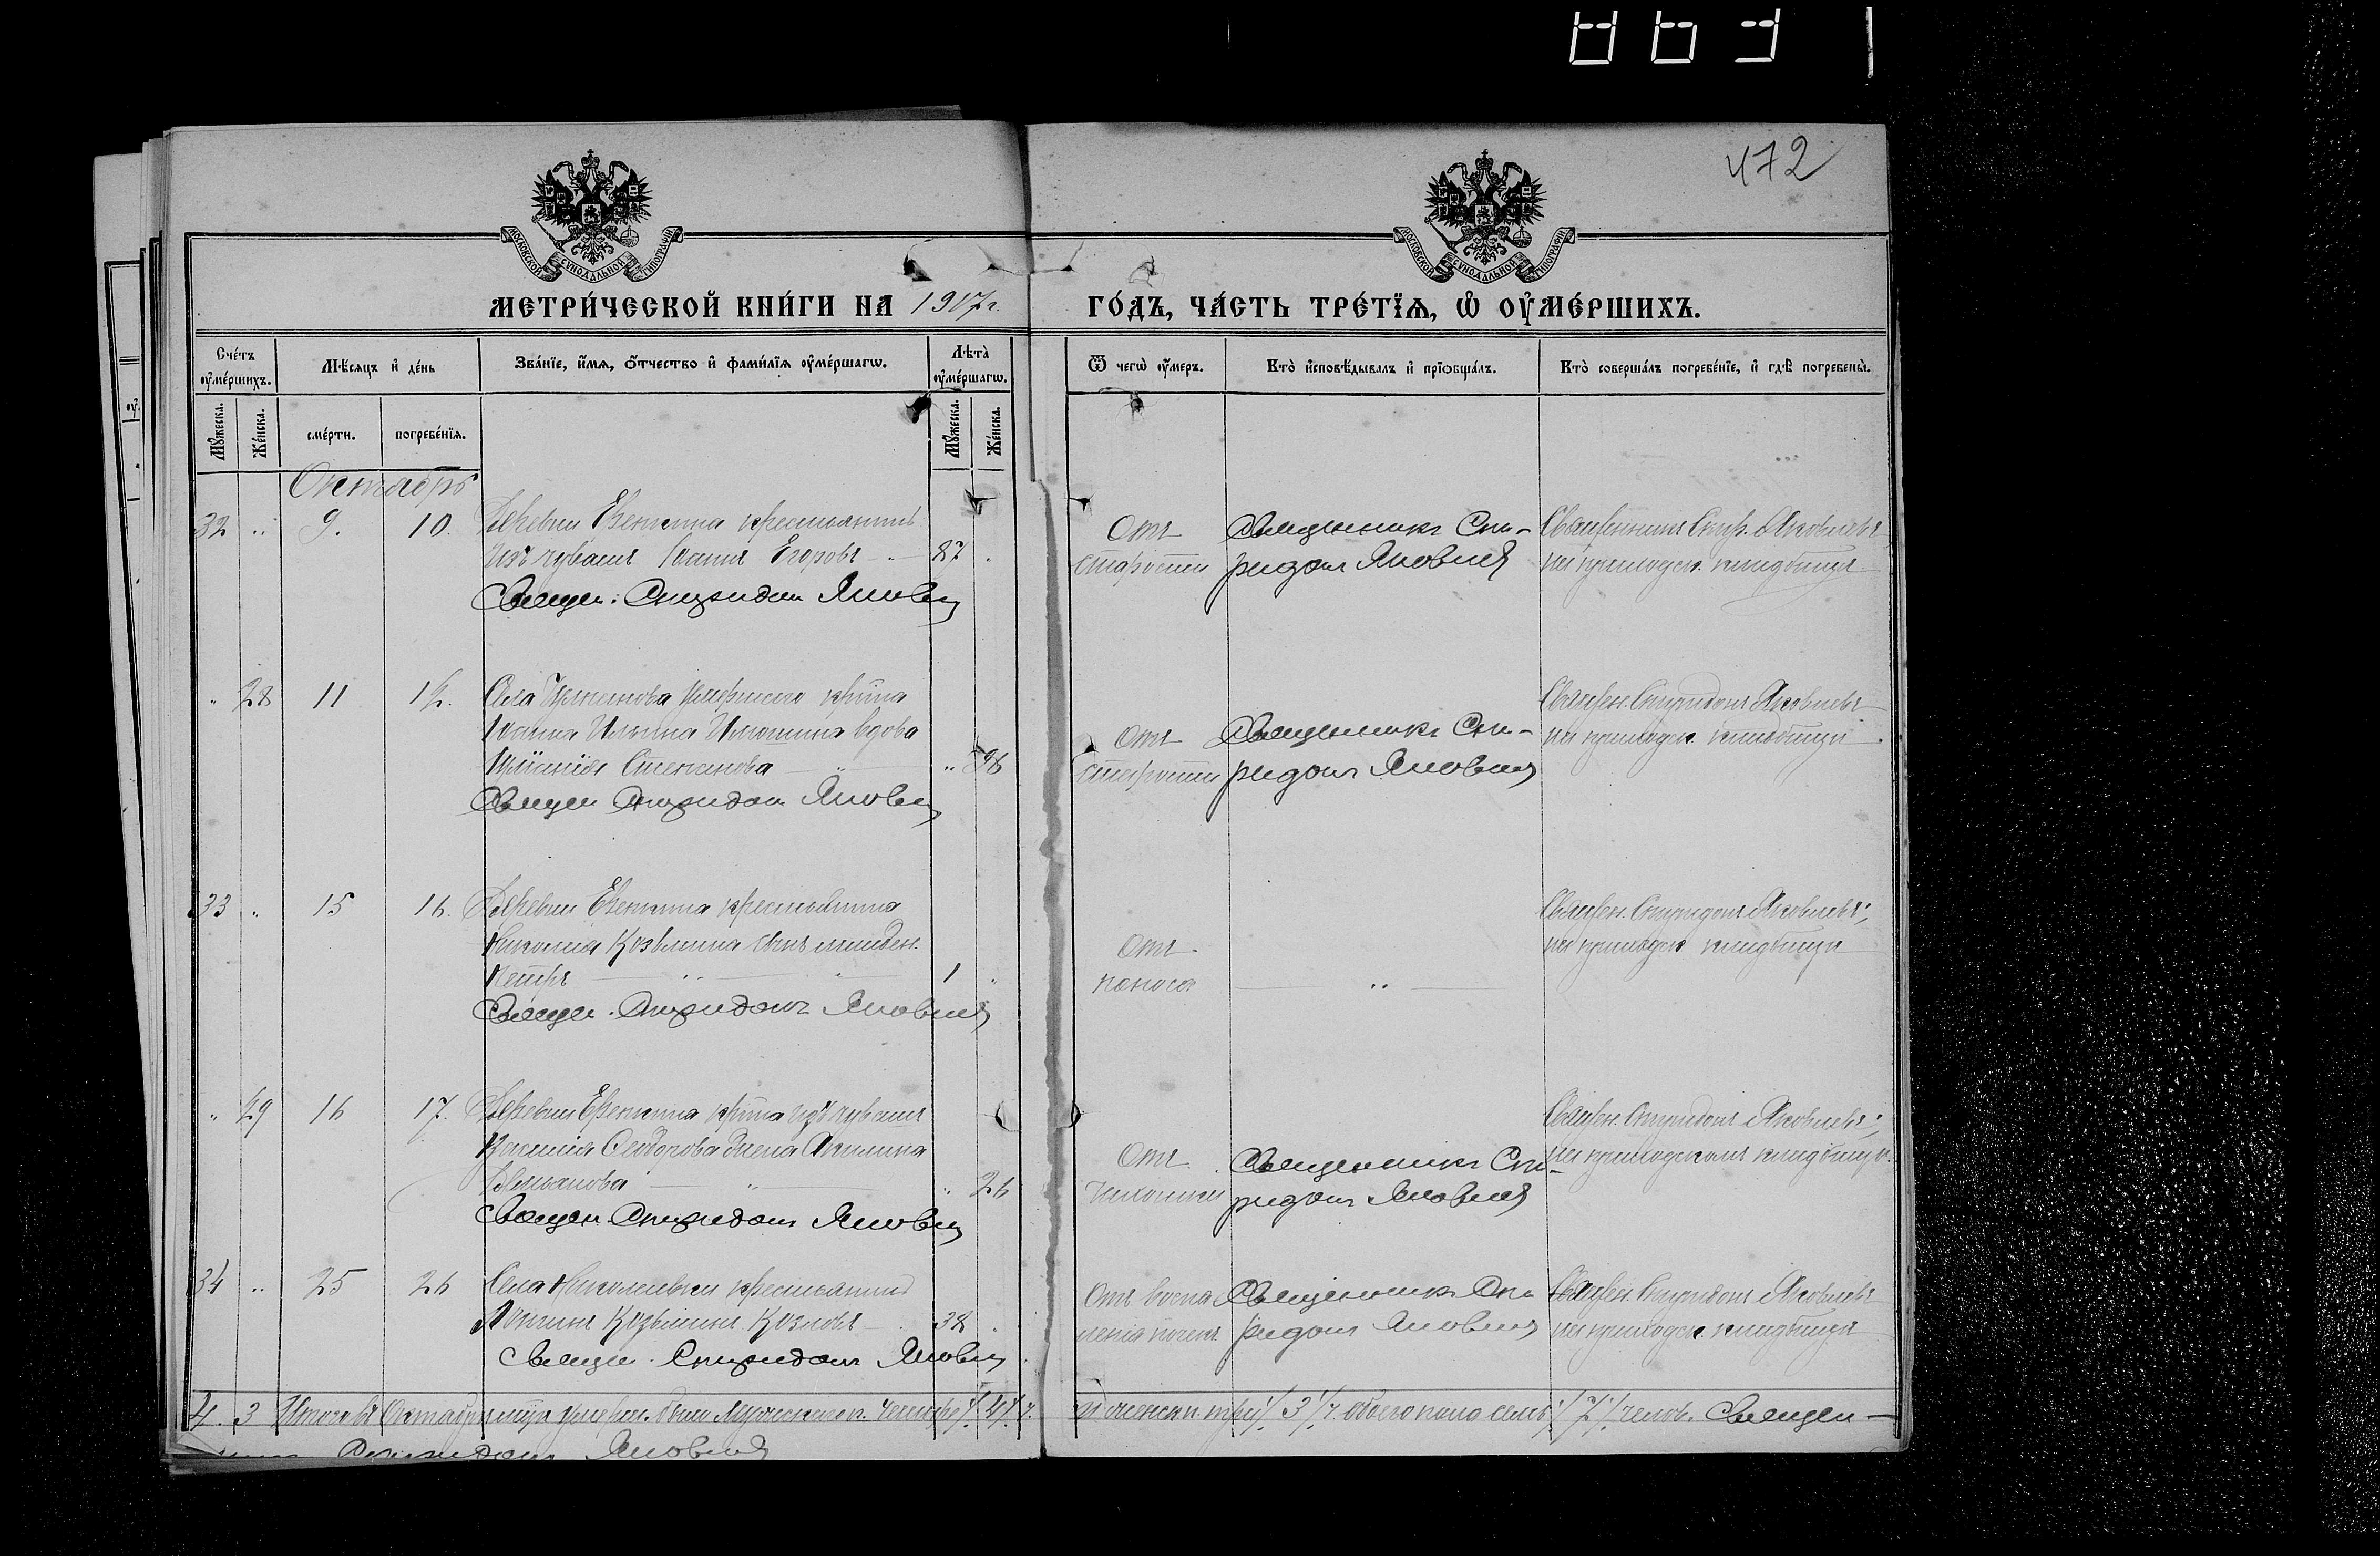 472
МОСКОВСКОЙ СѴНОДАЛЬНОЙ ТИПОГРАФІИ
МОСКОВСКОЙ СѴНОДАЛЬНОЙ ТИПОГРАФІИ
МЕТРИ́ЧЕСКОЙ КНИ́ГИ НА 1917 г.
ГО́ДЪ, ЧА́СТЬ ТРЕ́ТЇѦ, Ѡ҆ ОУ҆МЕ́РШИХЪ.
Сче́тъ оу҆ме́ршихъ.
Мѣ́сѧцъ и҆ де́нь
Зва́нїе, и҆́мѧ, ѻ҆́тчество и҆ фами́лїѧ оу҆ме́ршагѡ.
Лѣ́та оу҆ме́ршагѡ.
Ѿ чегѡ̀ оу҆́меръ.
Кто̀ и҆сповѣ́дывалъ и҆ прїѡбща́лъ.
Кто̀ соверша́лъ погребе́нїе, и҆ гдѣ̀ погребены̀.
Мꙋ́жеска.
Же́нска.
сме́рти.
погребе́нїѧ.
Мꙋ́жеска.
Же́нска.
Октябрь
32 " 9. 10. Деревни крестьянинъ
изъ чувашъ Іоаннъ Егоровъ 87
Священ. Спиридонъ Яковлев
Отъ
старости
Священникъ Спи-
ридонъ Яковлевъ
Священникъ Спир. Яковлевъ
на приходск. кладбищѣ
" 28 11 12. Села крестьянина
Іоанна Ильина вдова
Степанова "
Священ Спиридонъ Яковлев
Отъ
старости
Священникъ Спи-
ридонъ Яковлев
Священ. Спиридонъ Яковлевъ
на приходск. кладбищѣ
33 " 15 16. Деревни крестьянина
Николая Козьмина сынъ младен.
Петръ 1 "
Священ. Спиридонъ Яковлевъ
Отъ
поноса
Священ. Спиридонъ Яковлевъ;
на приходск кладбищѣ
" 29 16 17. Деревни изъ чувашъ
Василія Ѳеодорова жена Акилина
" 26
Священ Спиридонъ Яковлев
Отъ
Священникъ Спи-
ридонъ Яковлевъ
Священ. Спиридонъ Яковлевъ;
на приходскомъ кладбищѣ.
34 " 25 26 Села Николаевки крестьянинъ
Козьминъ Козловъ 38
Священ. Спиридонъ Яковлев
Отъ воспа
ленія почекъ
Священникъ Спи
ридонъ Яковлев
Священ. Спиридонъ Яковлевъ
на приходск. кладбищѣ
4. 3 Итого въ Октябрѣ умерш. было Мужескаго п. четыре /4/
и женск п. три /3/ обоего пола семь /7/ челов. Священ-
Спиридонъ Яковлевъ